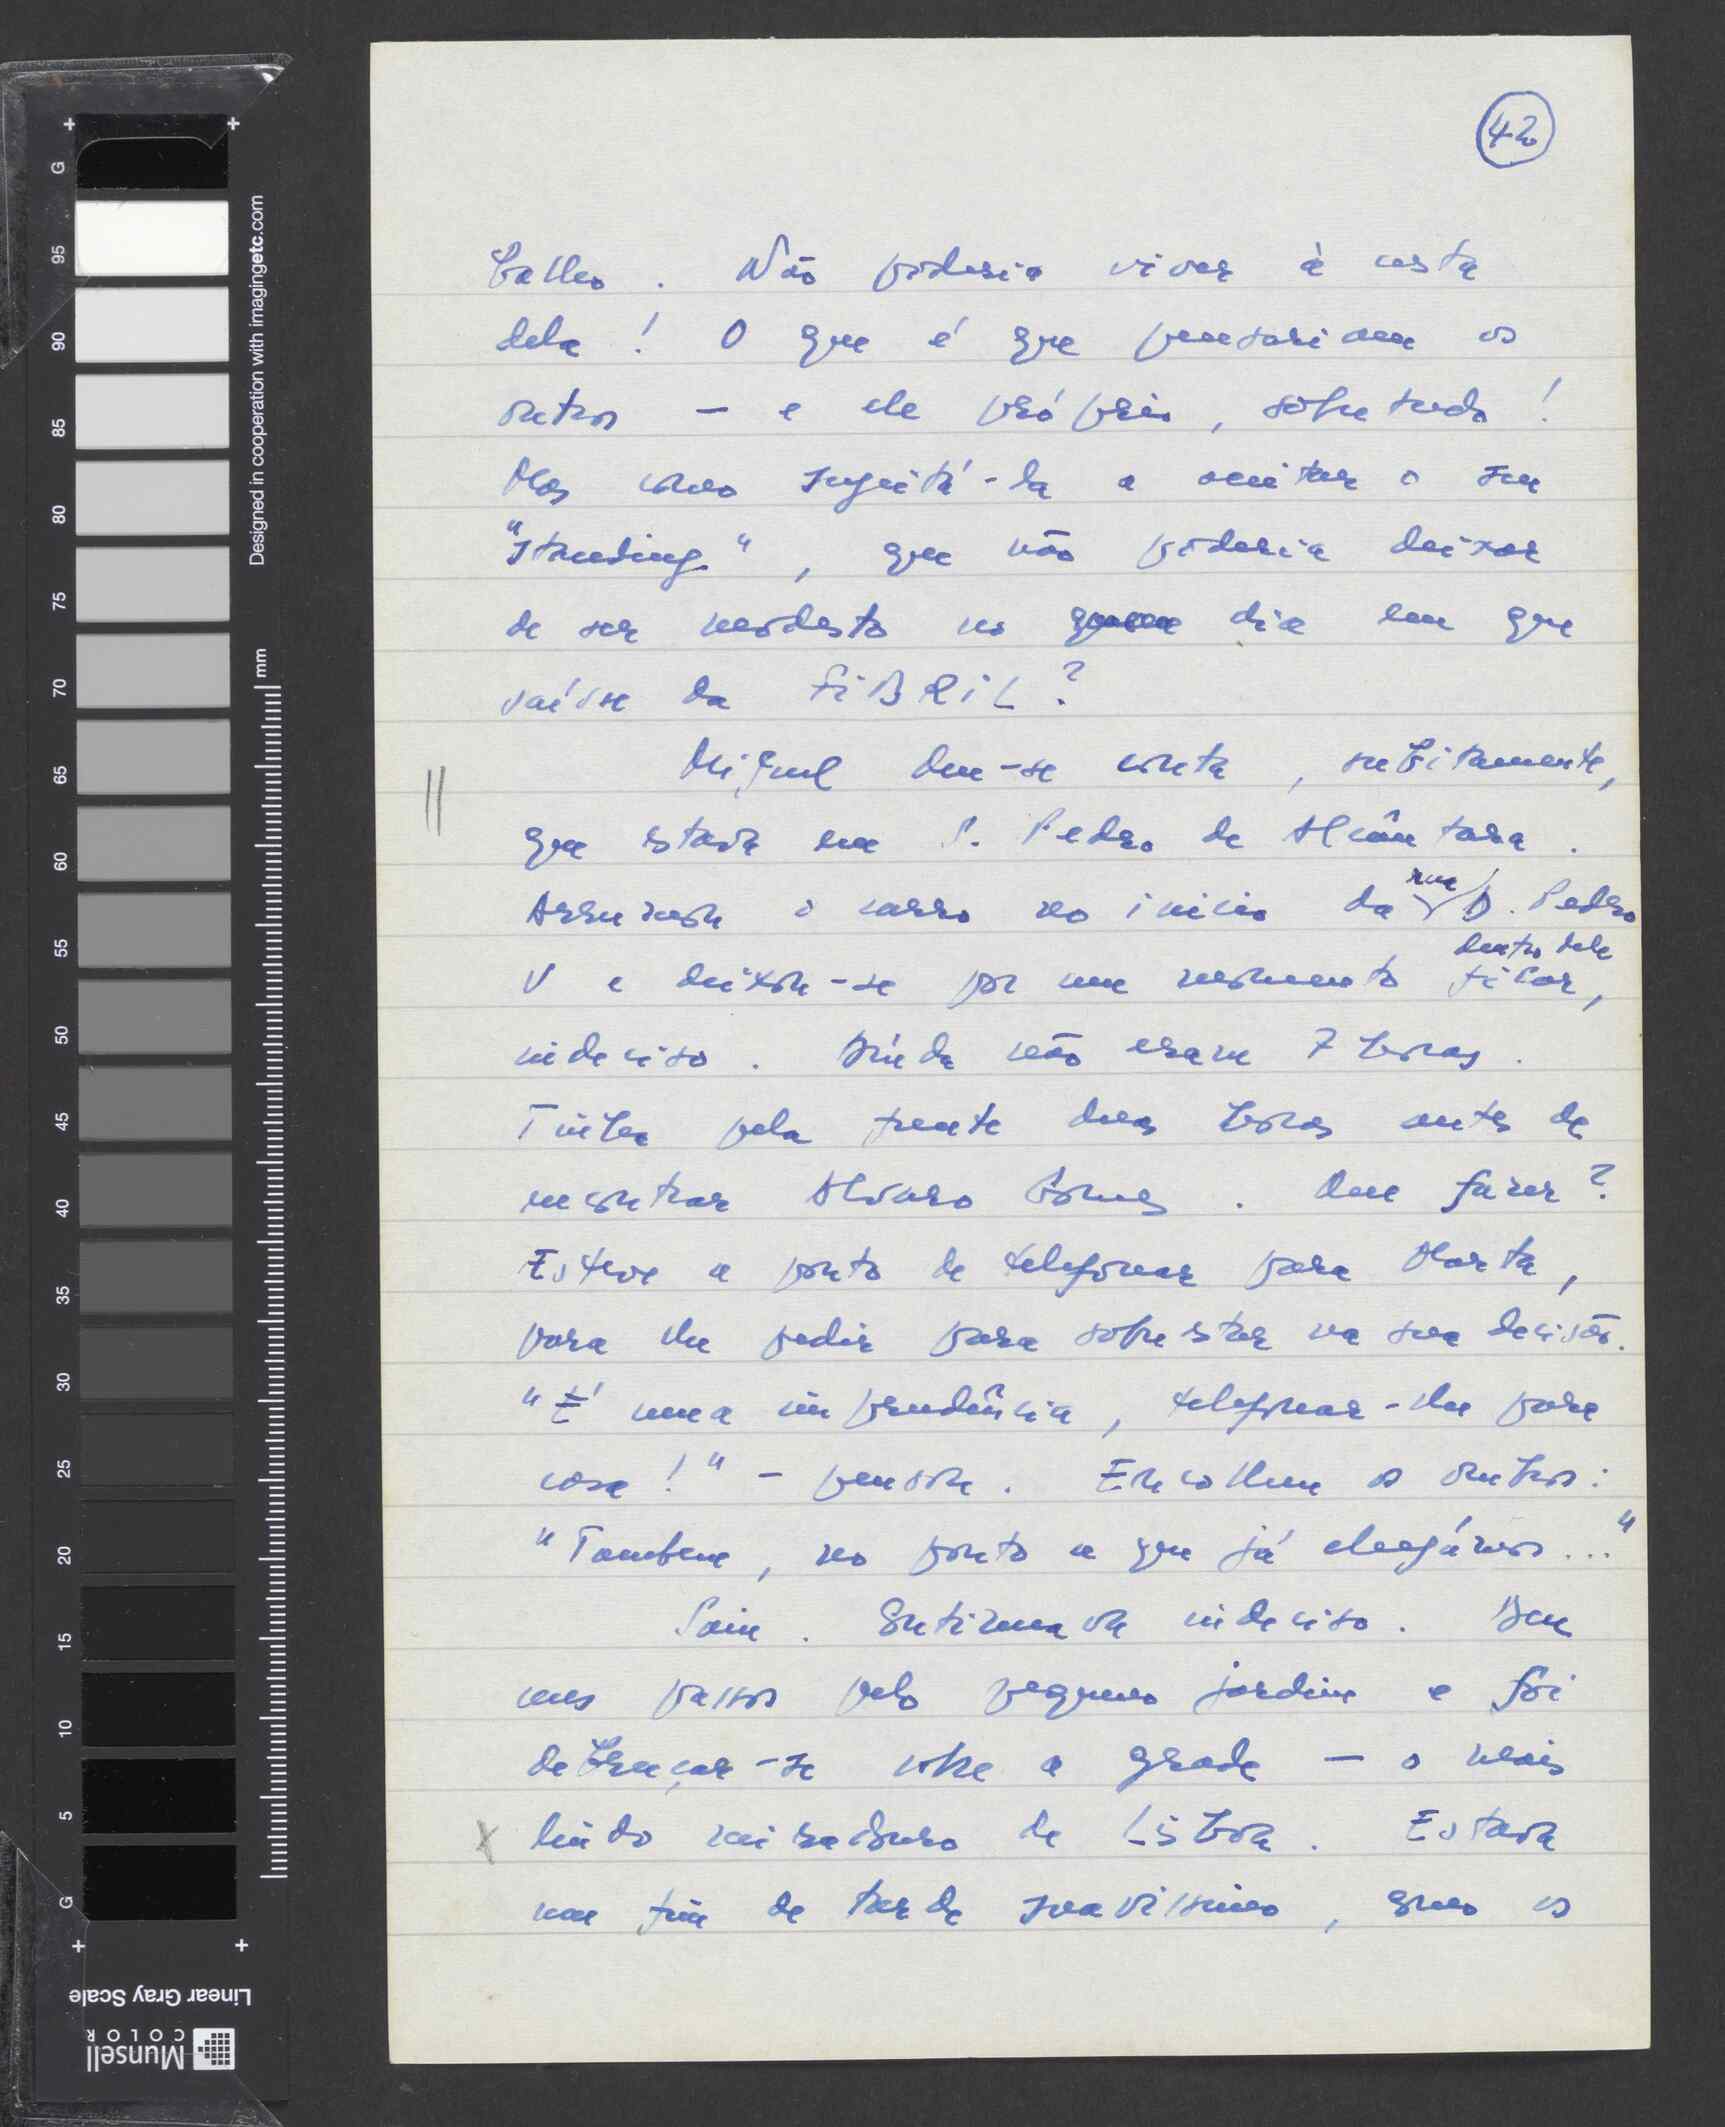 42
balho. Não poderia viver à custa
dela! O que é que pensariam os
outros — e ele próprio, sobretudo!
Mas como sujeitá-la a aceitar o seu
"standing", que não poderia deixar
de ser modesto no dia em que
saísse da FIBRIL?
Miguel deu-se conta, subitamente,
que estava em S. Pedro de Alcântara.
Arrumou o carro no início da rua D. Pedro
V e deixou-se por um momento ficar, dentro dele
indeciso. Ainda não eram 7 horas.
Tinha pela frente duas horas antes de
encontrar Álvaro Gomes. Que fazer?
Esteve a ponto de telefonar para Marta,
para lhe pedir para sobrestar na sua decisão.
"É uma imprudência, telefonar-lhe para
casa!" - pensou. Encolheu os ombros:
"Tambem, no ponto a que já chegámos..."
Saiu. Continuava indeciso. Deu
uns passos pelo pequeno jardim e foi
debruçar-se sobre a grade — o mais
lindo miradouro de Lisboa. Estava
um fim de tarde suavíssimo, como os
Designed in cooperation with imagingetc.com
mm
G 95 90 85 80 75 70 65 60 55 50 45 40 35 30 25 20 15 10 5 G
Linear Gray Scale
Munsell
COLOR